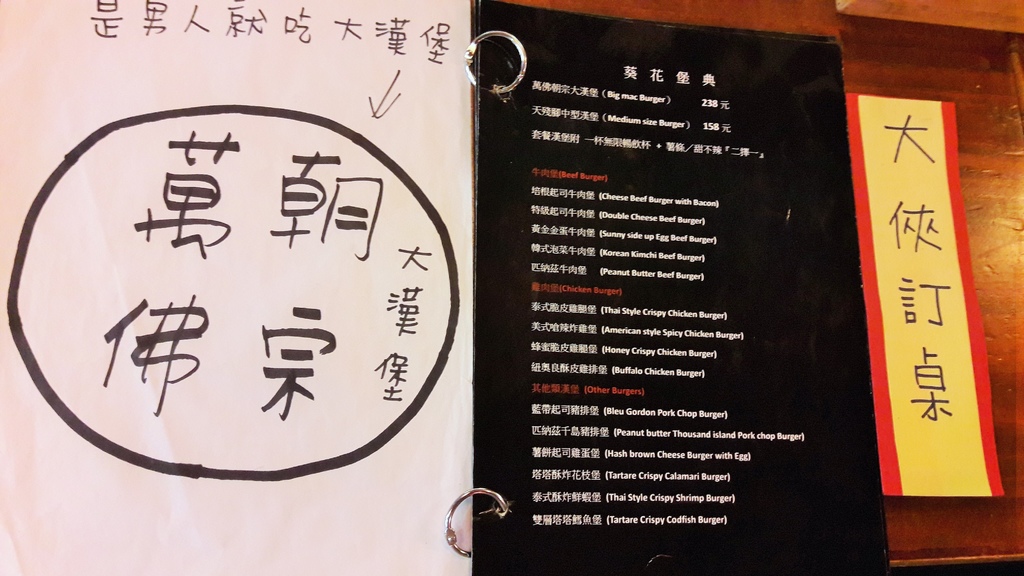 是男人就吃大漢堡
萬佛
朝宗
大漢堡
葵花堡典
萬佛朝宗大漢堡（Big mac Burger） 238 元
天殘腳中型漢堡（Medium size Burger） 158 元
套餐漢堡附 一杯無限暢飲杯 + 薯條／甜不辣『二擇一』
牛肉堡(Beef Burger)
培根起司牛肉堡 (Cheese Beef Burger with Bacon)
特級起司牛肉堡 (Double Cheese Beef Burger)
黃金金蛋牛肉堡 (Sunny side up Egg Beef Burger)
韓式泡菜牛肉堡 (Korean Kimchi Beef Burger)
匹納茲牛肉堡 (Peanut Butter Beef Burger)
雞肉堡(Chicken Burger)
泰式脆皮雞腿堡 (Thai Style Crispy Chicken Burger)
美式嗆辣炸雞堡 (American style Spicy Chicken Burger)
蜂蜜脆皮雞腿堡 (Honey Crispy Chicken Burger)
紐奧良酥皮雞排堡 (Buffalo Chicken Burger)
其他類漢堡 (Other Burgers)
藍帶起司豬排堡 (Bleu Gordon Pork Chop Burger)
匹納茲千島豬排堡 (Peanut butter Thousand island Pork chop Burger)
薯餅起司雞蛋堡 (Hash brown Cheese Burger with Egg)
塔塔酥炸花枝堡 (Tartare Crispy Calamari Burger)
泰式酥炸鮮蝦堡 (Thai Style Crispy Shrimp Burger)
雙層塔塔鱈魚堡 (Tartare Crispy Codfish Burger)
大俠訂桌